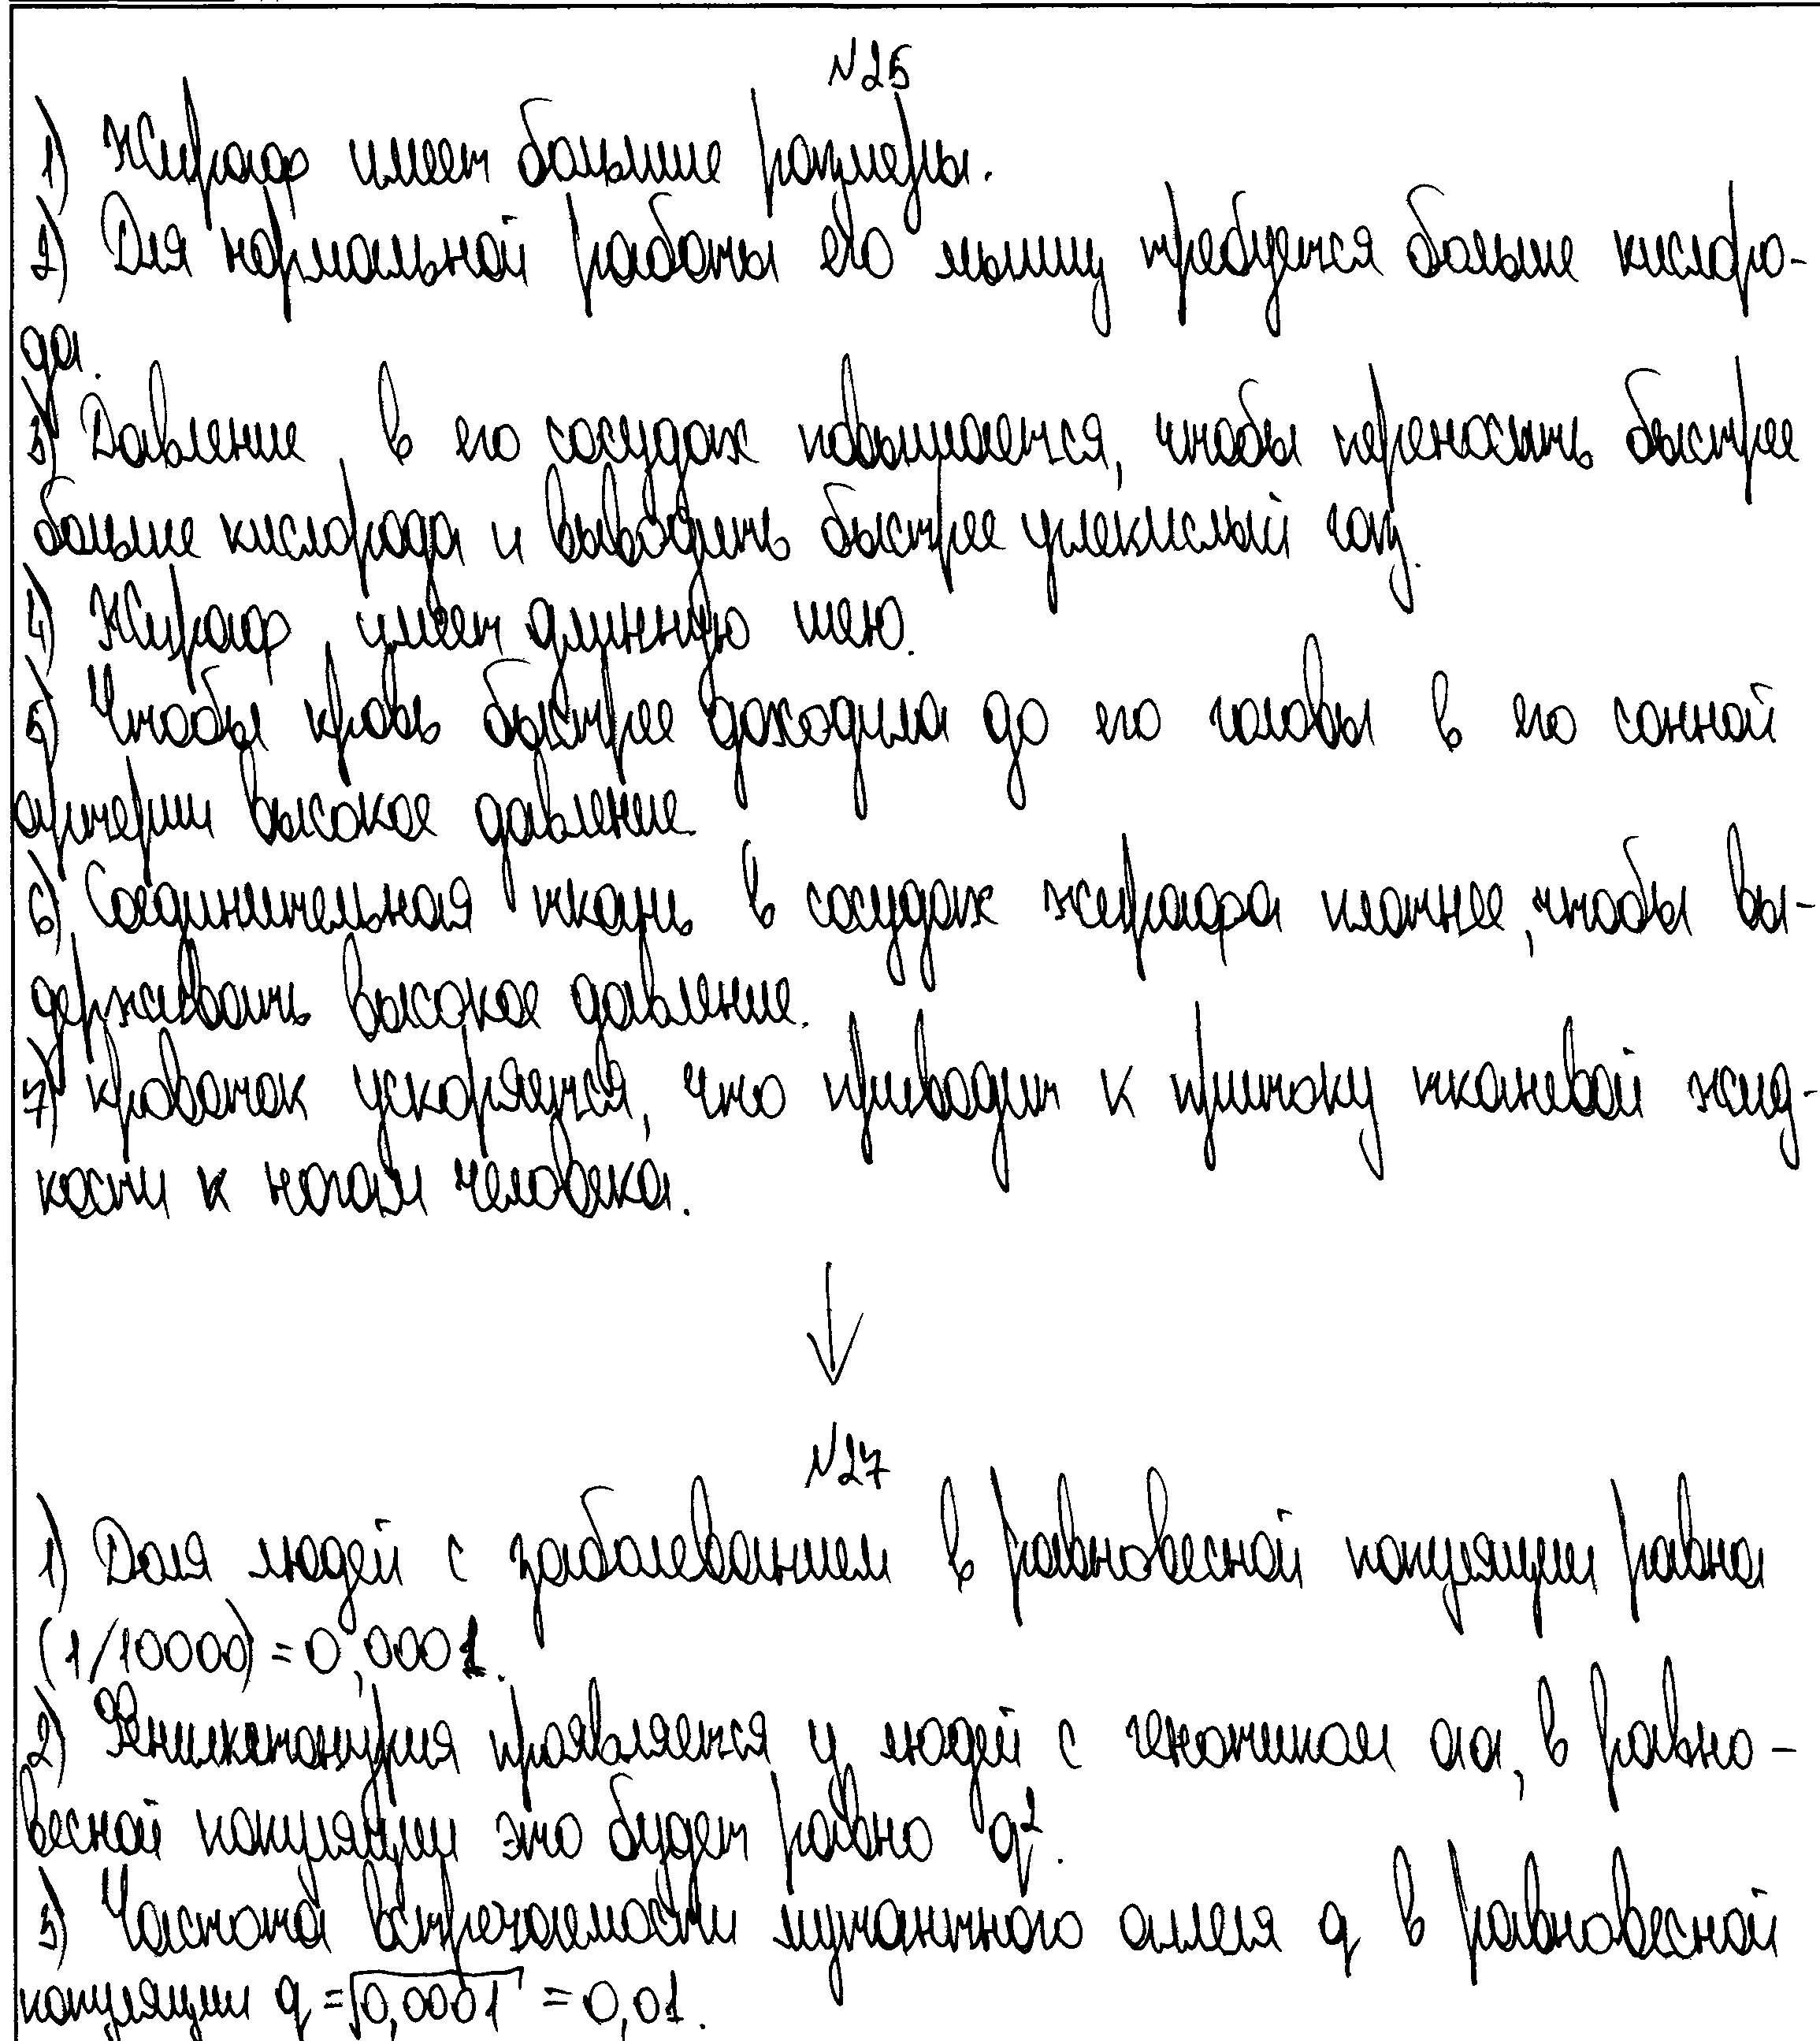 №25
1) Жираф имеет большие размеры.
2) Для нормальной работы его мышц требуется больше кислоро-
да.
3) Давление в его сосудах повышается, чтобы переносить быстрее
больше кислорода и выводить быстрее углекислый газ.
4) Жираф имеет длинную шею.
5) Чтобы кровь быстрее доходила до его головы в его сонной
артерии высокое давление.
6) Соединительная ткань в сосудах жирафа плотнее, чтобы вы-
держивать высокое давление.
7) кровоток ускоряется, что приводит к притоку тканевой жид-
кости к ногам человека.
№27
1) Доля людей с заболеванием в равновесной популяции равна
(1/10000) = 0,0001.
2) Фенилкетонурия проявляется у людей с генотипом аа, в равно-
весной популяции это будет равно q².
3) Частота встречаемости мутантного аллеля q в равновесной
популяции q = √0,0001 = 0,01.